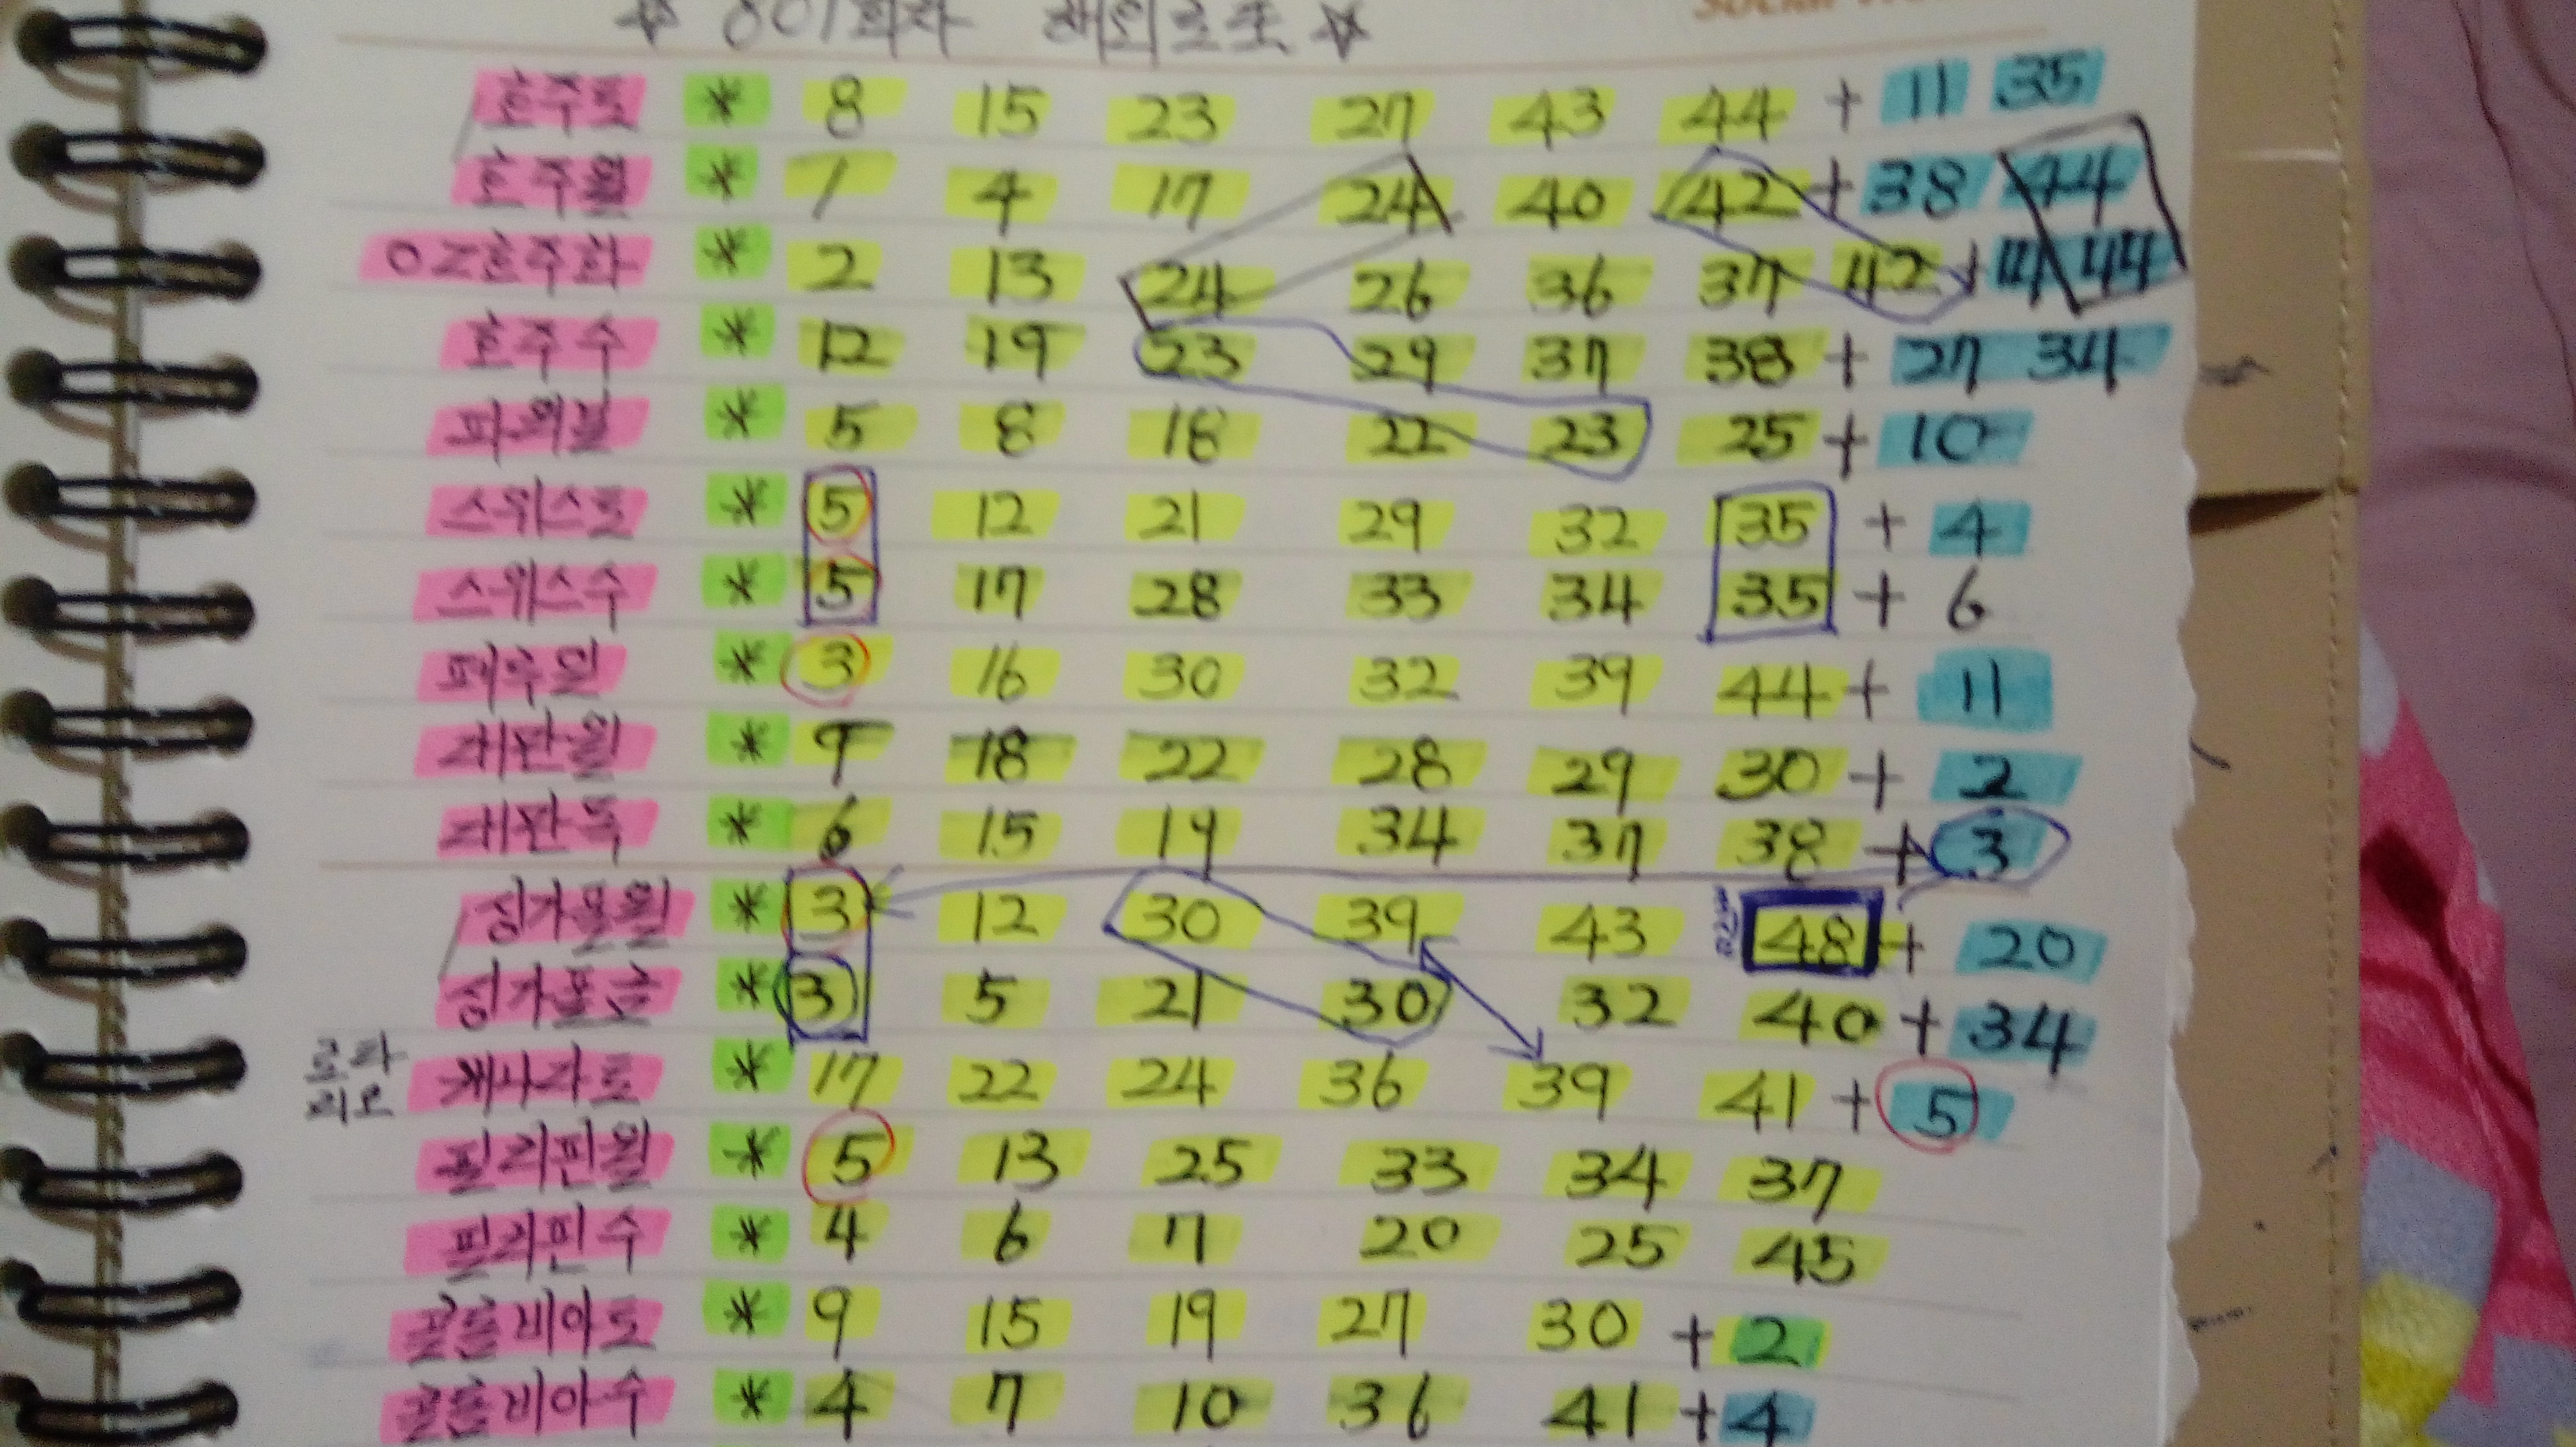 ☆ 801회차 해외로또 ☆
호주토 * 8 15 23 27 43 44 + 11 35
호주월 * 1 4 17 24 40 42 + 38 44
OZ호주화 * 2 13 24 26 36 37 42 + 44
호주수 * 12 19 23 29 37 38 + 27 34
파워볼 * 5 8 18 22 23 25 + 10
스위스토 * 5 12 21 29 32 35 + 4
스위스수 * 5 17 28 33 34 35 + 6
* 3 16 30 32 39 44 + 11
* 9 18 22 28 29 30 + 2
* 6 15 19 34 37 38 + 3
싱가폴월 * 3 12 30 39 43 48 + 20
싱가폴금 * 3 5 21 30 32 40 + 34
캐나다토 * 17 22 24 36 39 41 + 5
필리핀월 * 5 13 25 33 34 37
필리핀수 * 4 6 17 20 25 45
콜롬비아토 * 9 15 19 27 30 + 2
콜롬비아수 * 4 7 10 36 41 + 4